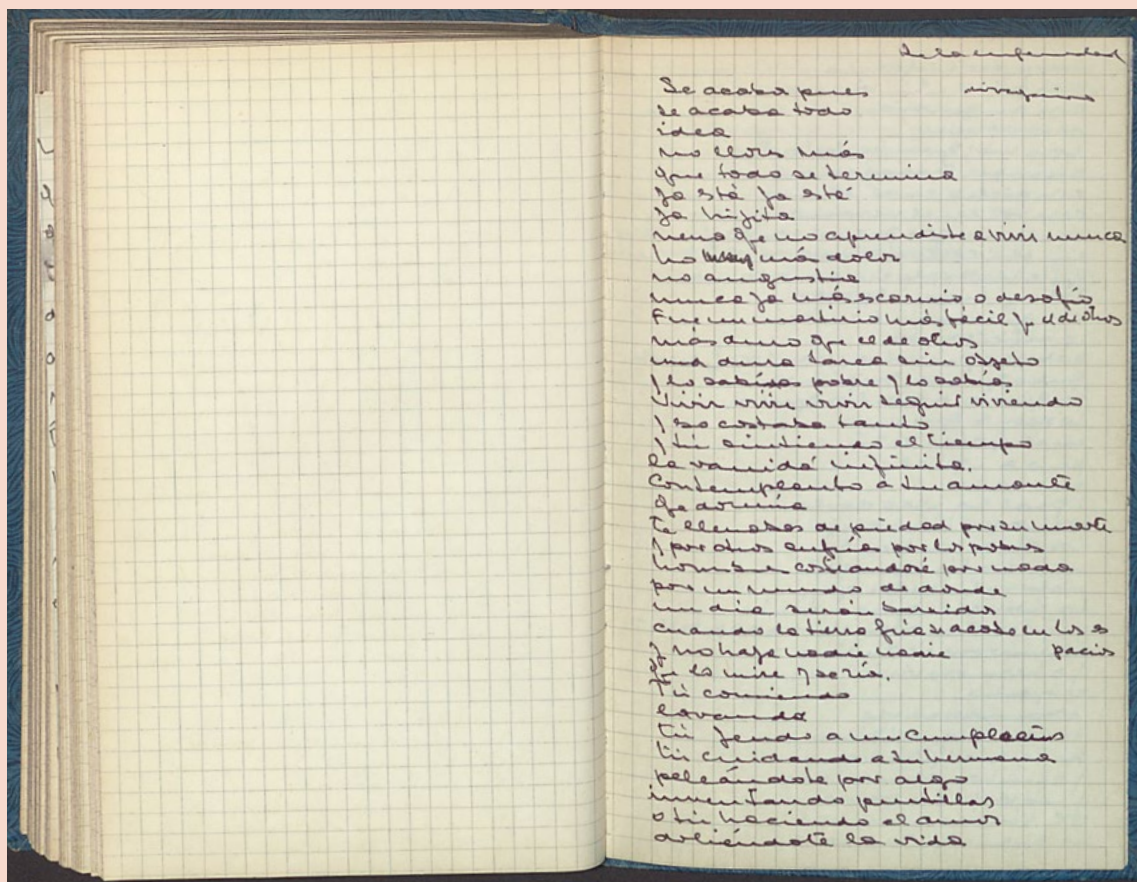 De la enfermedad
Se acaba pues
se acaba todo
idea
no llores más
que todo se termina
ya está ya está
ya hijita
nena que no aprendiste a vivir nunca
no más dolor
no angustia
nunca ya más escarnio o desafío
Fue un martirio más fácil y de otros
más duro que el de otros
una dura tarea sin objeto
y lo sabías pobre y lo sabías
vivir vivir vivir seguir viviendo
y eso costaba tanto
y tú sintiendo el tiempo
la vanidá infinita.
Contemplando a tu amante
que dormía
te llenabas de piedad por su muerte
y por otros sufrías por los pobres
hombres por nada
por un mundo de donde
un día serán barridos
cuando la tierra fría en los es
pacios
y no haya nadie nadie
que la mire y ría.
Tú comiendo
lavando
tú yendo a un cumpleaños
tú cuidando a tu hermana
peleándote por algo
inventando puntillas
o tú haciendo el amor
doliéndote la vida